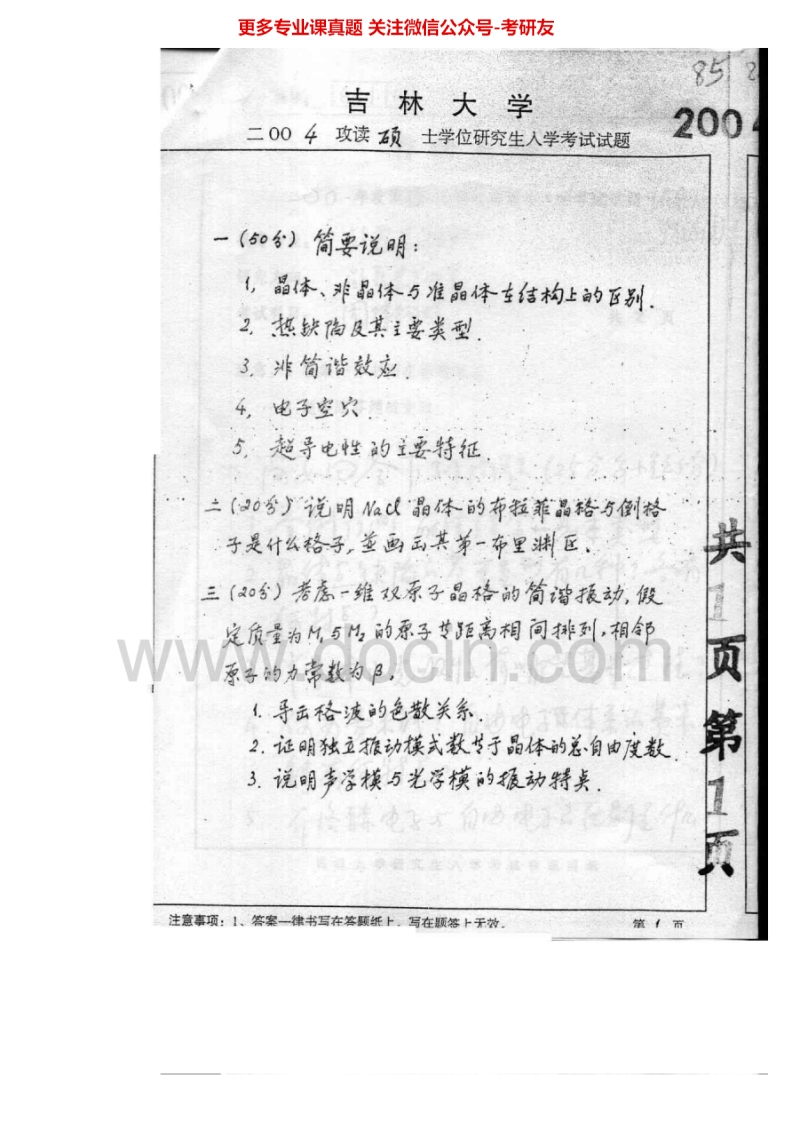 更多专业课真题 关注微信公众号-考研友
85
吉林大学
二00 4 攻读 硕 士学位研究生入学考试试题
200
一(50分) 简要说明:
1, 晶体、非晶体与准晶体在结构上的区别.
2. 热缺陷及其主要类型.
3, 非简谐效应.
4, 电子空穴.
5. 超导电性的主要特征.
二(20分) 说明 Nacl 晶体的布拉菲晶格与倒格
子是什么格子, 並画出其第一布里渊区.
三(20分) 考虑一维双原子晶格的简谐振动, 假
定质量为M₁与M₂的原子等距离相间排列, 相邻
原子的力常数为β.
1. 导出格波的色散关系.
2. 证明独立振动模式数等于晶体的总自由度数.
3. 说明声学模与光学模的振动特点.
www.docin.com
共1页第1页
注意事项: 1、答案一律书写在答题纸上, 写在题签上无效.
第 1 页